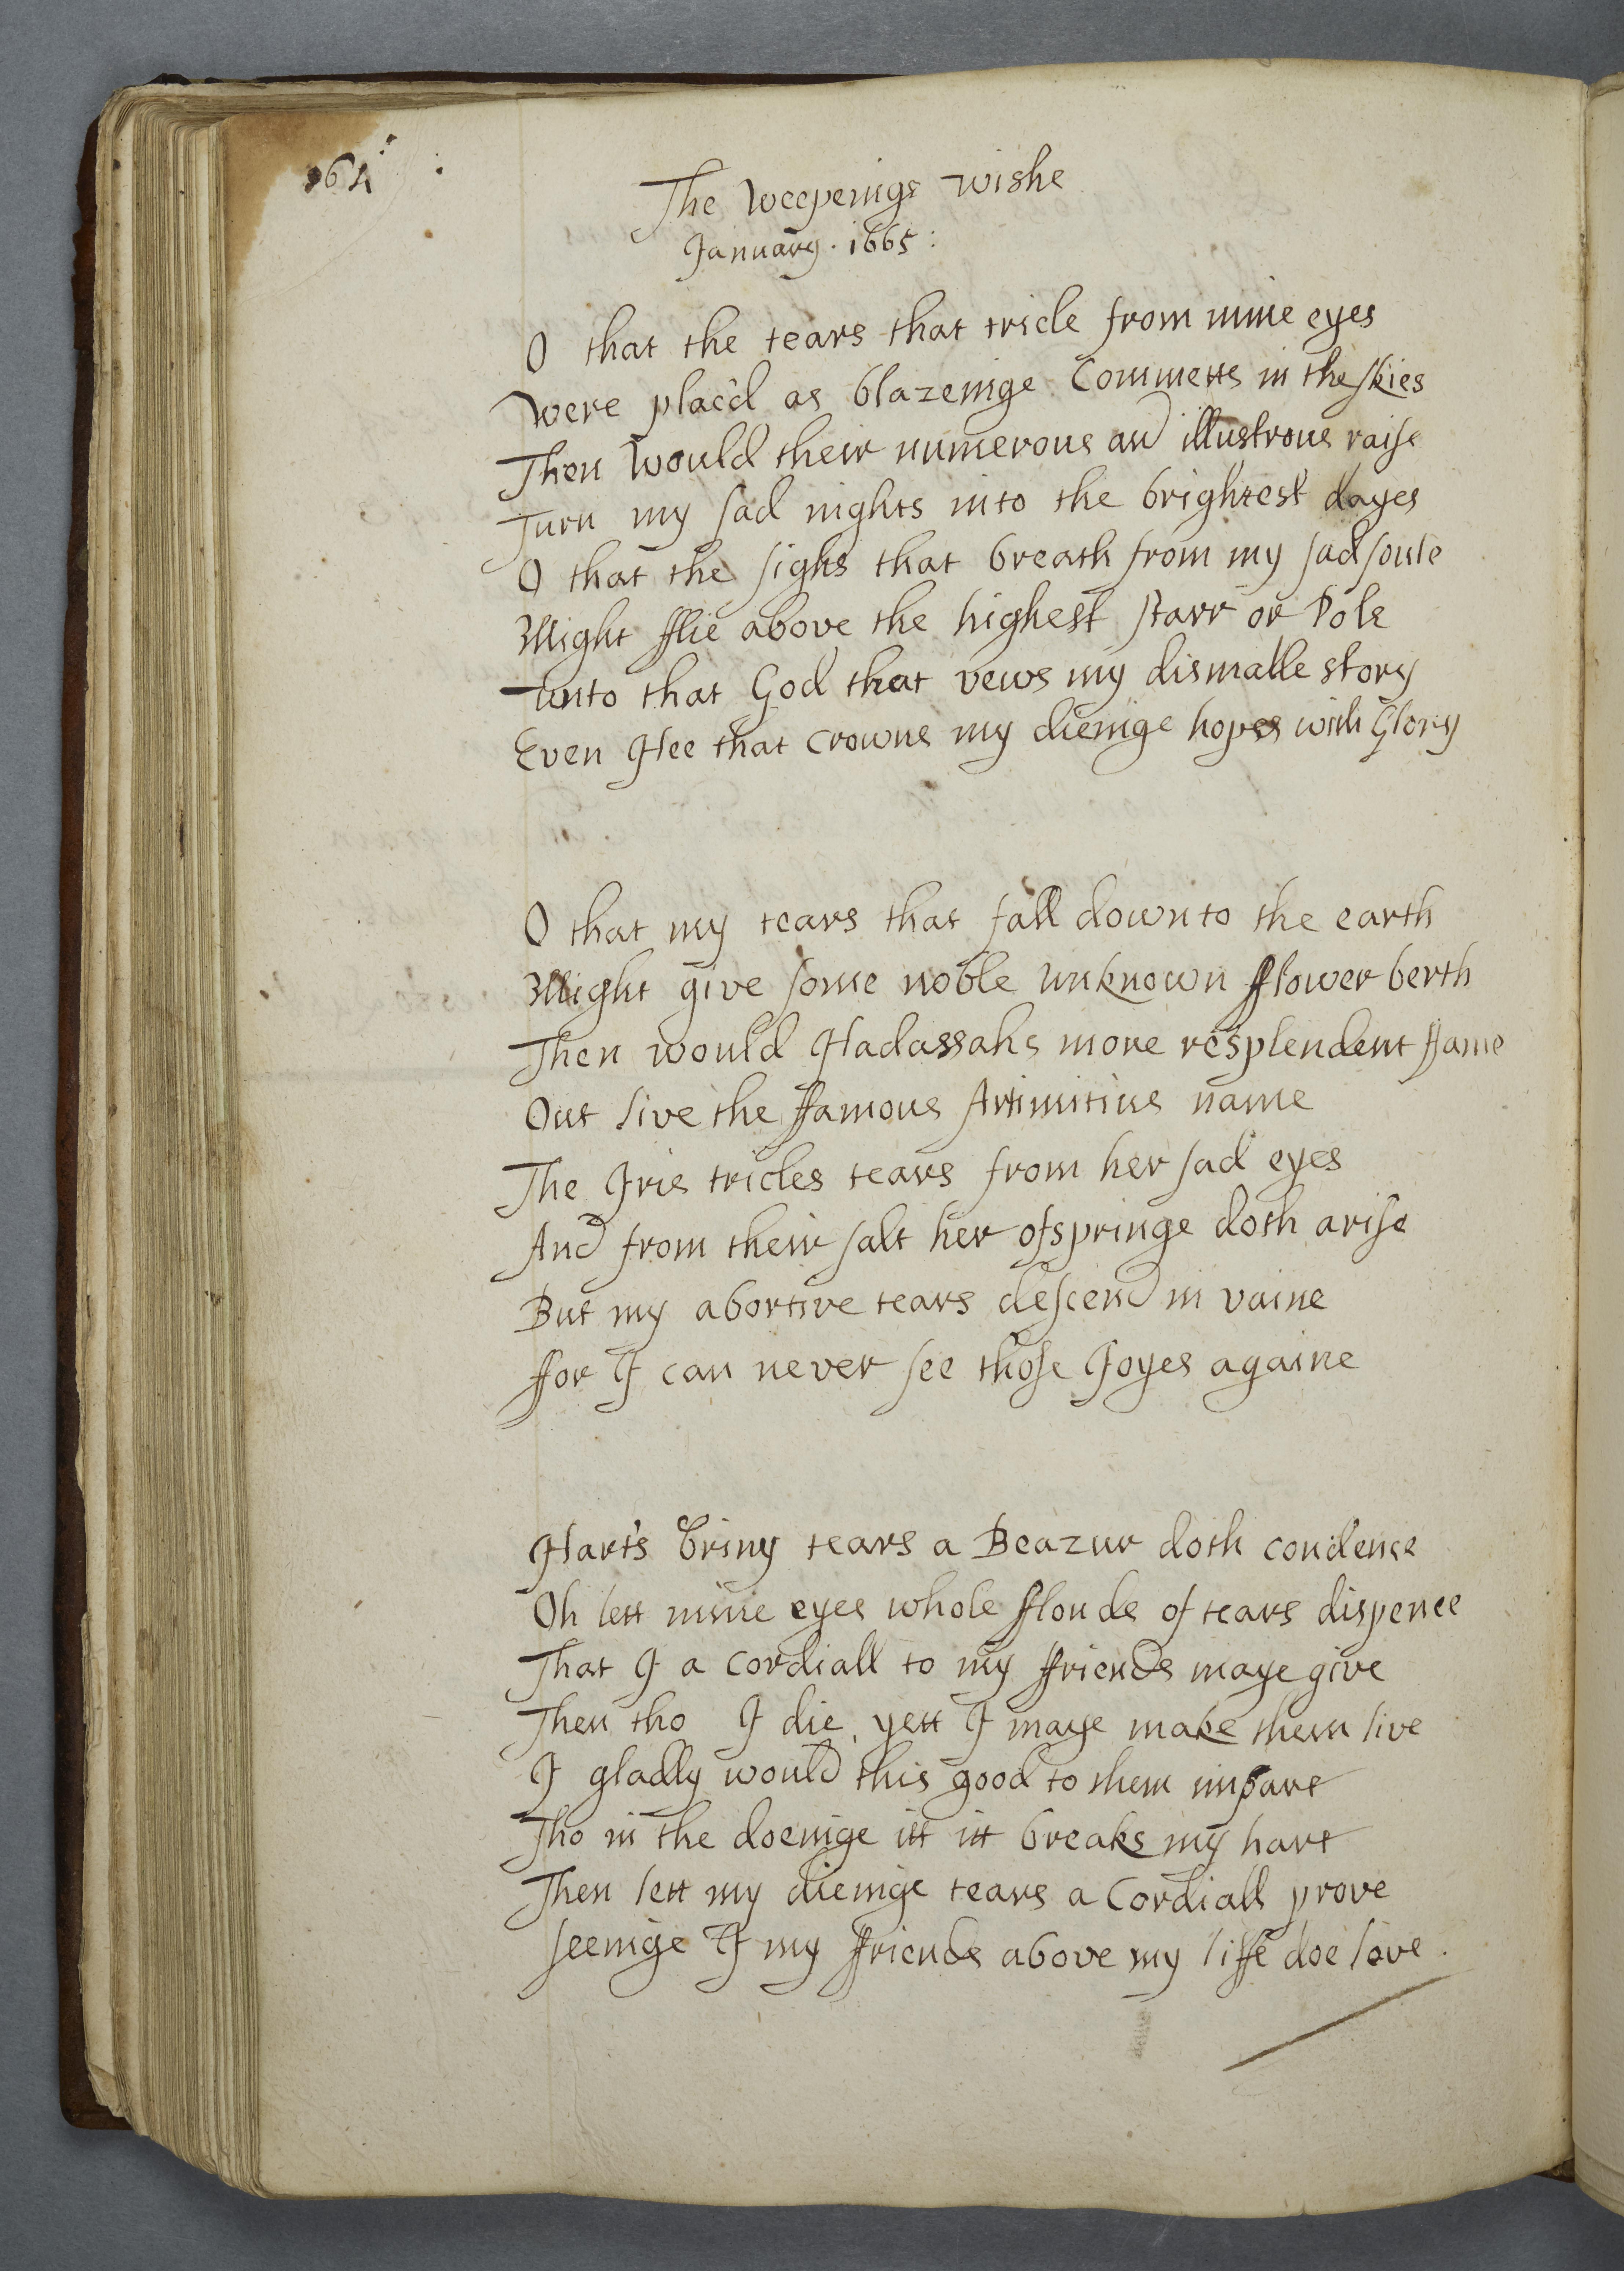 164
The Weepeinge wishe
January . 1665 :
O that the tears that tricle from mine eyes
Were plac'd as blazeinge Commetts in the skies
Then Would their numerous and illustrous raise
Turn my sad nights into the brightest dayes
O that the sighs that breath from my sad soule
Might fflie above the highest starr or Pole
unto that God that vews my dismalle story
Even Hee that crowns my dieinge hopes with Glory
O that my tears that fall down to the earth
Might give some noble unknown fflower berth
Then would Hadassahs more resplendent ffame
Out live the ffamous Artimitius name
The Iris tricles tears from her sad eyes
And from their salt her ofspringe doth arise
But my abortive tears descend in vaine
ffor I can never see those Joyes againe
Hart's briny tears a Beazur doth condence
Oh lett mine eyes whole ffloude of tears dispence
That I a cordiall to my ffriends maye give
Then tho I die, yett I maye make them live
I gladly would this good to them impart
Tho in the doeinge itt itt breaks my hart
Then lett my dieinge tears a Cordiall prove
seeinge I my ffriends above my liffe doe love .